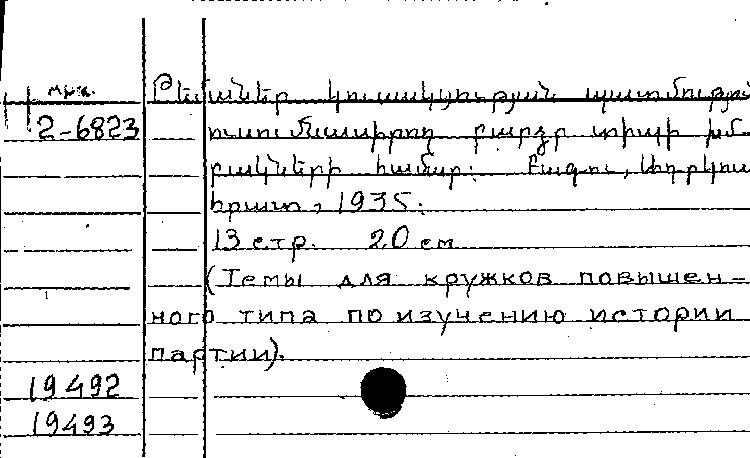 Թեմաներ կուսակցության պատմություն
2-6823 ուսումնասիրող բարձր տիպի խմ-
բակների համար: Բագու,
հրատ, 1935.
13 стр. 20 см
(Темы для кружков повышен-
ного типа по изучению истории
партии).
19492
19493